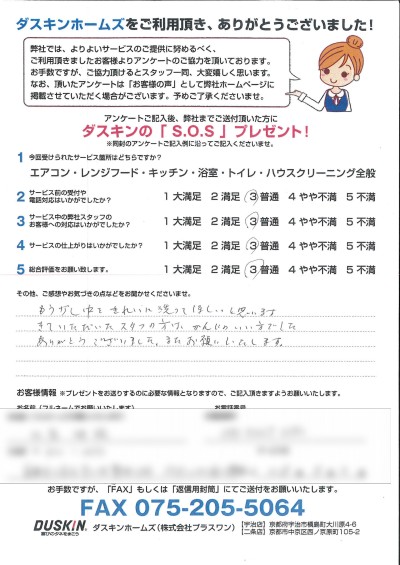 ダスキンホームズをご利用頂き、ありがとうございました!
弊社では、よりよいサービスのご提供に努めるべく、
ご利用頂きましたお客様よりアンケートのご協力を頂いております。
お手数ですが、ご協力頂けるとスタッフ一同、大変嬉しく思います。
なお、頂いたアンケートは「お客様の声」として弊社ホームページに
掲載させていただく場合がございます。予めご了承くださいませ。
アンケートご記入後、弊社までご送付頂いた方に
ダスキンの「S.O.S」プレゼント!
※同封のアンケートご記入例に沿ってご記入くださいませ。
1 今回受けられたサービス箇所はどちらですか?
エアコン・レンジフード・キッチン・浴室・トイレ・ハウスクリーニング全般
2 サービス前の受付や
電話対応はいかがでしたか?
1 大満足 2 満足 3 普通 4 やや不満 5 不満
3 サービス中の弊社スタッフの
お客様への対応はいかがでしたか?
1 大満足 2 満足 3 普通 4 やや不満 5 不満
4 サービスの仕上がりはいかがでしたか?
1 大満足 2 満足 3 普通 4 やや不満 5 不満
5 総合評価をお願い致します。
1 大満足 2 満足 3 普通 4 やや不満 5 不満
その他、ご感想やお気づきの点などをお聞かせくださいませ。
もう少し中をきれいに洗ってほしいと思います
きていただいたスタッフの方は、かんじのいい方でした
ありがとうございました。またお願いいたします。
お客様情報 ※プレゼントをお送りするのに必要な情報となりますので、ご記入頂きますようお願いいたします。
お名前(フルネームでお願いいたします)
お電話番号
お手数ですが、「FAX」もしくは「返信用封筒」にてご送付をお願いいたします。
FAX 075-205-5064
DUSKIN
喜びのタネをまこう
ダスキンホームズ(株式会社プラスワン)
【宇治店】京都府宇治市槇島町大川原4-6
【二条店】京都市中京区西ノ京原町105-2